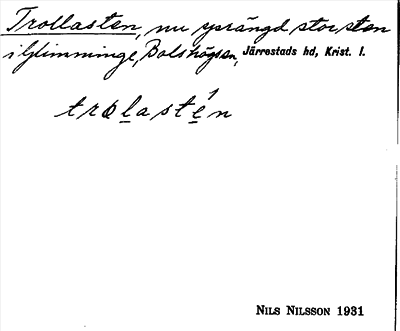 Trollasten, nu sprängd stor sten
i Glimminge, Bolshögs sn, Järrestads hd, Krist. l.
trolastén
NILS NILSSON 1931